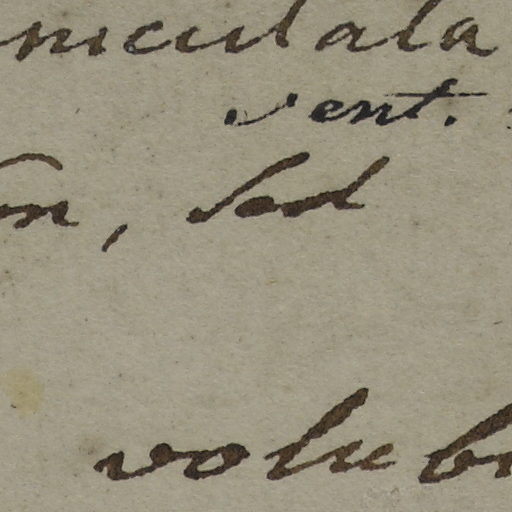 niculata
vent.
n, sed
volub